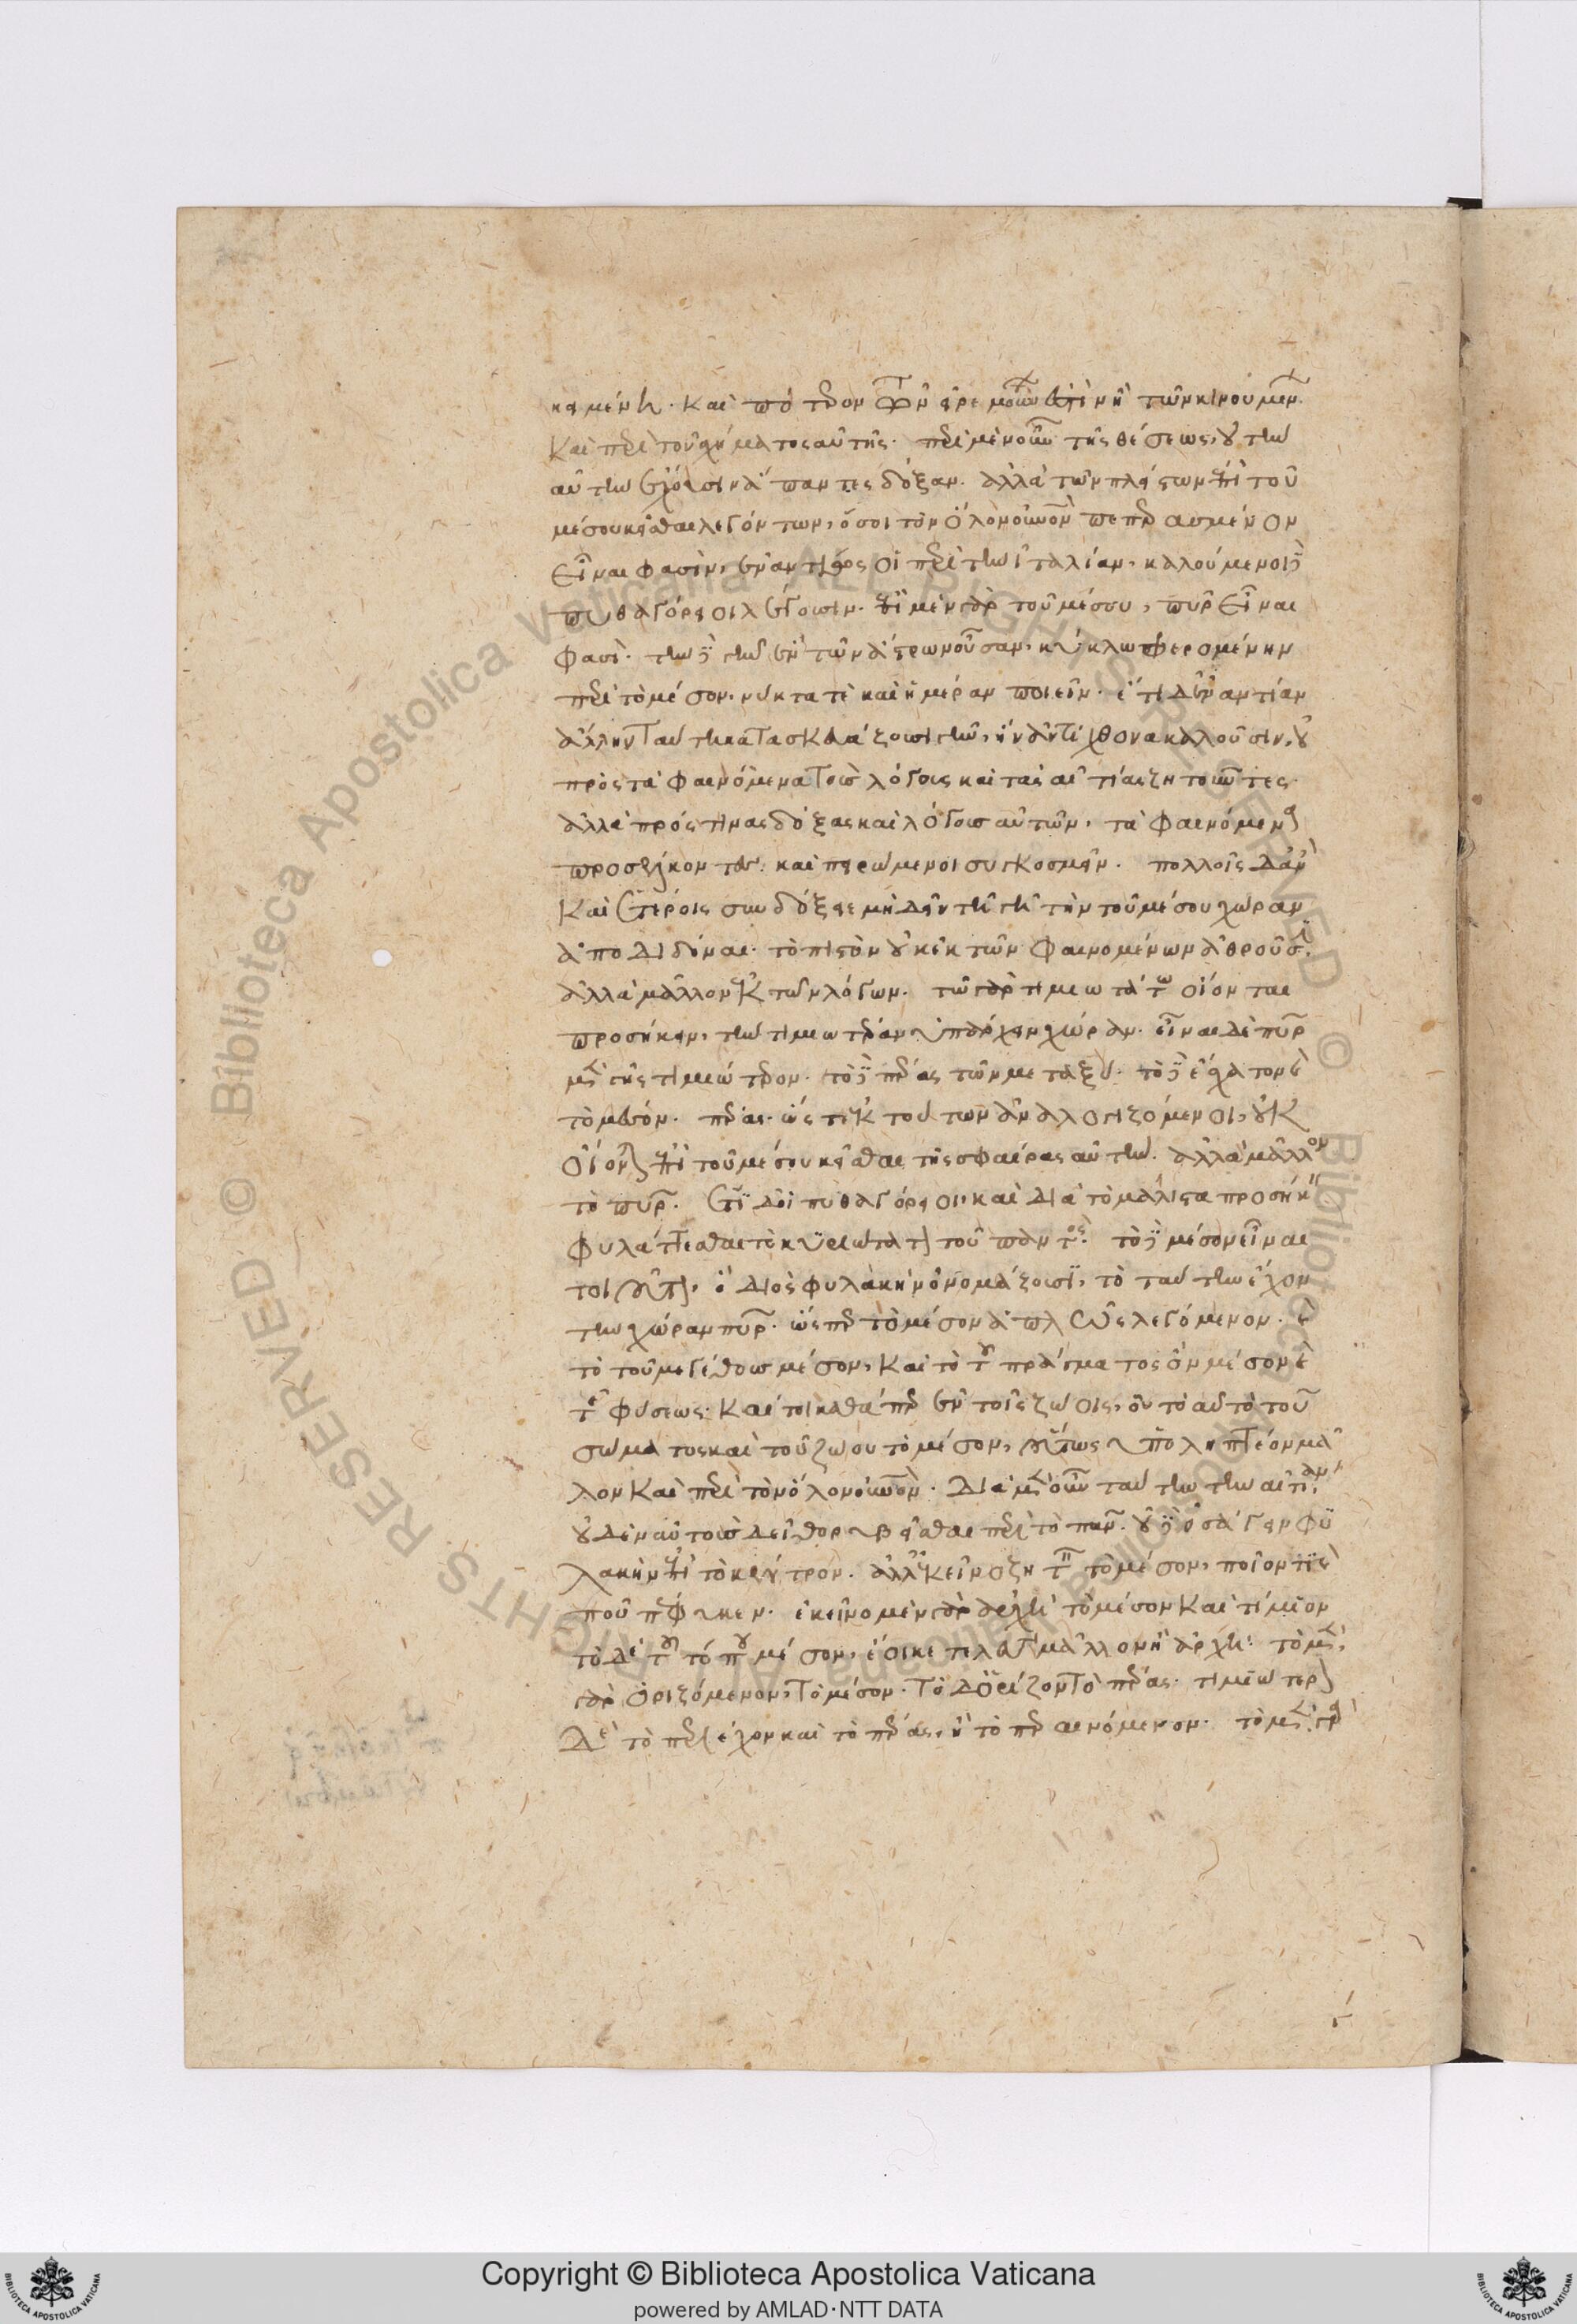 κειμένη. καὶ πότερον τῶν ἠρεμούντων ἐστὶν ἢ τῶν κινουμένων.
καὶ περὶ τοῦ σχήματος αὐτῆς. περὶ μὲν οὖν τῆς θέσεως, οὐ τὴν
αὐτὴν ἔχουσιν ἅπαντες δόξαν. ἀλλὰ τῶν πλείστων ἐπὶ τοῦ
μέσου κεῖσθαι λεγόντων, ὅσοι τὸν ὅλον οὐρανὸν πεπερασμένον
εἶναι φασὶν, ἐναντίως οἱ περὶ τὴν ἰταλίαν, καλούμενοι δὲ
πυθαγόρειοι λέγουσιν. ἐπὶ μὲν γὰρ τοῦ μέσου, πῦρ εἶναι
φασὶ. τὴν δὲ γῆν ἓν τῶν ἄστρων οὖσαν, κύκλω φερομένην
περὶ τὸ μέσον, νύκτα τὲ καὶ ἡμέραν ποιεῖν. ἔτι δ' ἐναντίαν
ἄλλην ταύτη κατασκευάζουσι γῆν, ἣν ἀντίχθονα καλοῦσιν, οὐ
πρὸς τὰ φαινόμενα τοὺς λόγους καὶ τὰς αἰτίας ζητοῦντες.
ἀλλὰ πρός τινας δόξας καὶ λόγους αὐτῶν, τὰ φαινόμενα
προσέλκοντες. καὶ πειρώμενοι συγκοσμεῖν. πολλοῖς δ' ἂν
καὶ ἑτέροις συνδόξειε μὴ δεῖν τῆ γῆ τὴν τοῦ μέσου χώραν
ἀποδιδόναι. τὸ πιστὸν οὐκ ἐκ τῶν φαινομένων ἀθροῦσιν.
ἀλλὰ μᾶλλον ἐκ τῶν λόγων. τῶ γὰρ τιμιωτάτω οἴονται
προσήκειν, τὴν τιμιωτάτην ὑπάρχειν χώραν. εἶναι δὲ πῦρ
μὲν γῆς τιμιώτερον. τὸ δὲ πέρας τῶν μεταξύ. τὸ δὲ ἔσχατον καὶ
τὸ μέσον. πέρας. ὥστ' ἐκ τούτων ἀναλογιζόμενοι, οὐκ
οἴονται ἐπὶ τοῦ μέσου κεῖσθαι τῆς σφαίρας αὐτὴν. ἀλλὰ μᾶλλον
τὸ πῦρ. ἔτι δ' οἱ πυθαγόρειοι, καὶ διὰ τὸ μάλιστα προσήκειν
φυλάττεσθαι τὸ κυριώτατον τοῦ παντός. τὸ δὲ μέσον εἶναι
τοιοῦτον, ὃ διὸς φυλακὴν ὀνομάζουσι, τὸ ταύτην ἔχον
τὴν χώραν πῦρ. ὥσπερ τὸ μέσον ἁπλῶς λεγόμενον. καὶ
τὸ τοῦ μεγέθους μέσον, καὶ τὸ τοῦ πράγματος ὂν μέσον καὶ
τῆς φύσεως. καί τοι καθάπερ ἐν τοῖς ζώοις, οὐ τὸ αὐτὸ τοῦ
σώματος καὶ τοῦ ζώου τὸ μέσον, οὕτως ὑποληπτέον μᾶλ
λον καὶ περὶ τὸν ὅλον οὐρανὸν. διὰ μὲν οὖν ταύτην τὴν αἰτίαν,
οὐδὲν αὐτοὺς δεῖ θορυβεῖσθαι περὶ τὸ πᾶν.
λακὴν ἐπὶ τὸ κέντρον. ἀλλ' ἐκεῖνο ζητεῖν τὸ μέσον, ποῖόν τι καὶ
ποῦ πέφυκεν. ἐκεῖνο μὲν γὰρ ἀρχὴ τὸ μέσον καὶ τίμιον
τὸ δὲ τοῦ τόπου μέσον, ἔοικε τελευτῆ μᾶλλον ἢ ἀρχῆ. τὸ μὲν
γὰρ ὁριζόμενον, τὸ μέσον. τὸ δ' ὁρίζον τὸ πέρας. τιμιώτερον
δὲ τὸ περιέχον καὶ τὸ πέρας, ἢ τὸ περαινόμενον. τὸ μὲν γὰρ
© Biblioteca Apostolica Vaticana ALL RIGHTS RESERVED
Copyright © Biblioteca Apostolica Vaticana
powered by AMLAD·NTT DATA